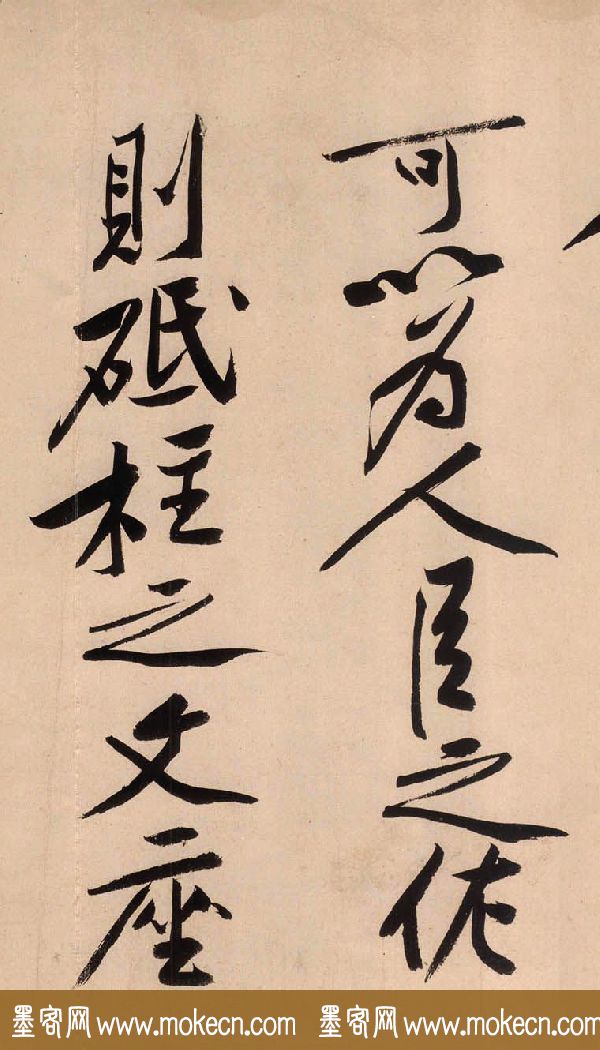 可以為人臣之佐
則砥柱之文座
墨客网 www.mokecn.com 墨客网 www.mokecn.com